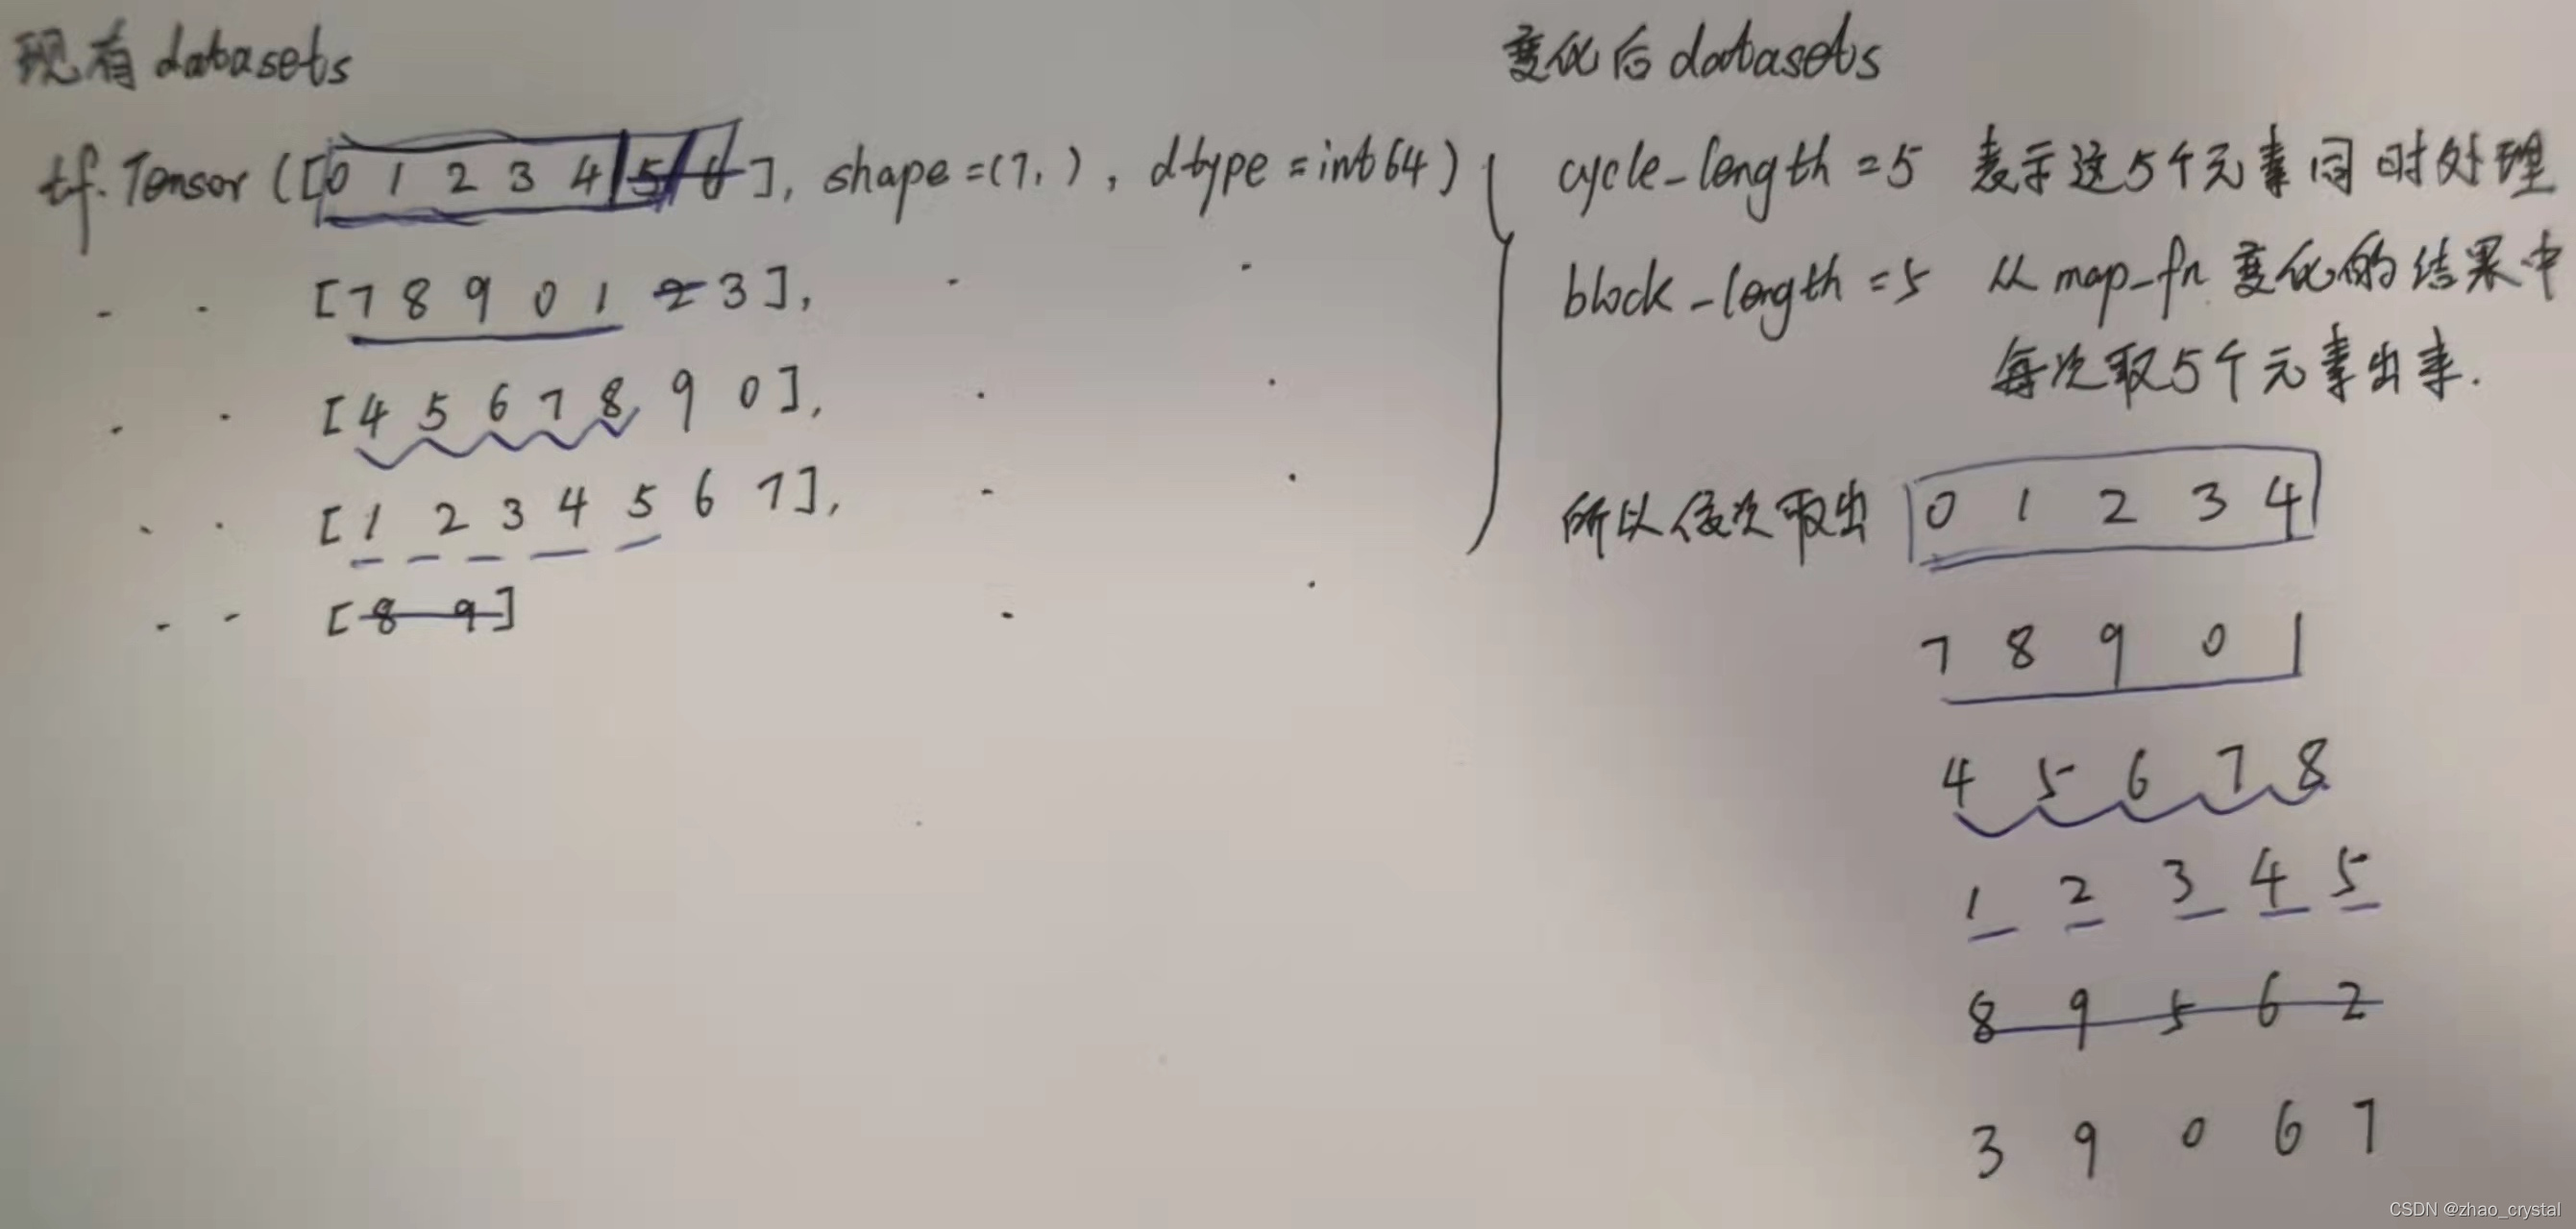 现有datasets
tf.Tensor([0 1 2 3 4 5 6], shape=(7,), dtype=int64)
[7 8 9 0 1 2 3],
[4 5 6 7 8 9 0],
[1 2 3 4 5 6 7],
[8 9]
变化后datasets
cycle_length=5 表示这5个元素同时处理
block_length=5 从map_fn变化的结果中
每次取5个元素出来.
所以依次取出 0 1 2 3 4
7 8 9 0 1
4 5 6 7 8
1 2 3 4 5
8 9 5 6 2
3 9 0 6 7
CSDN @zhao_crystal